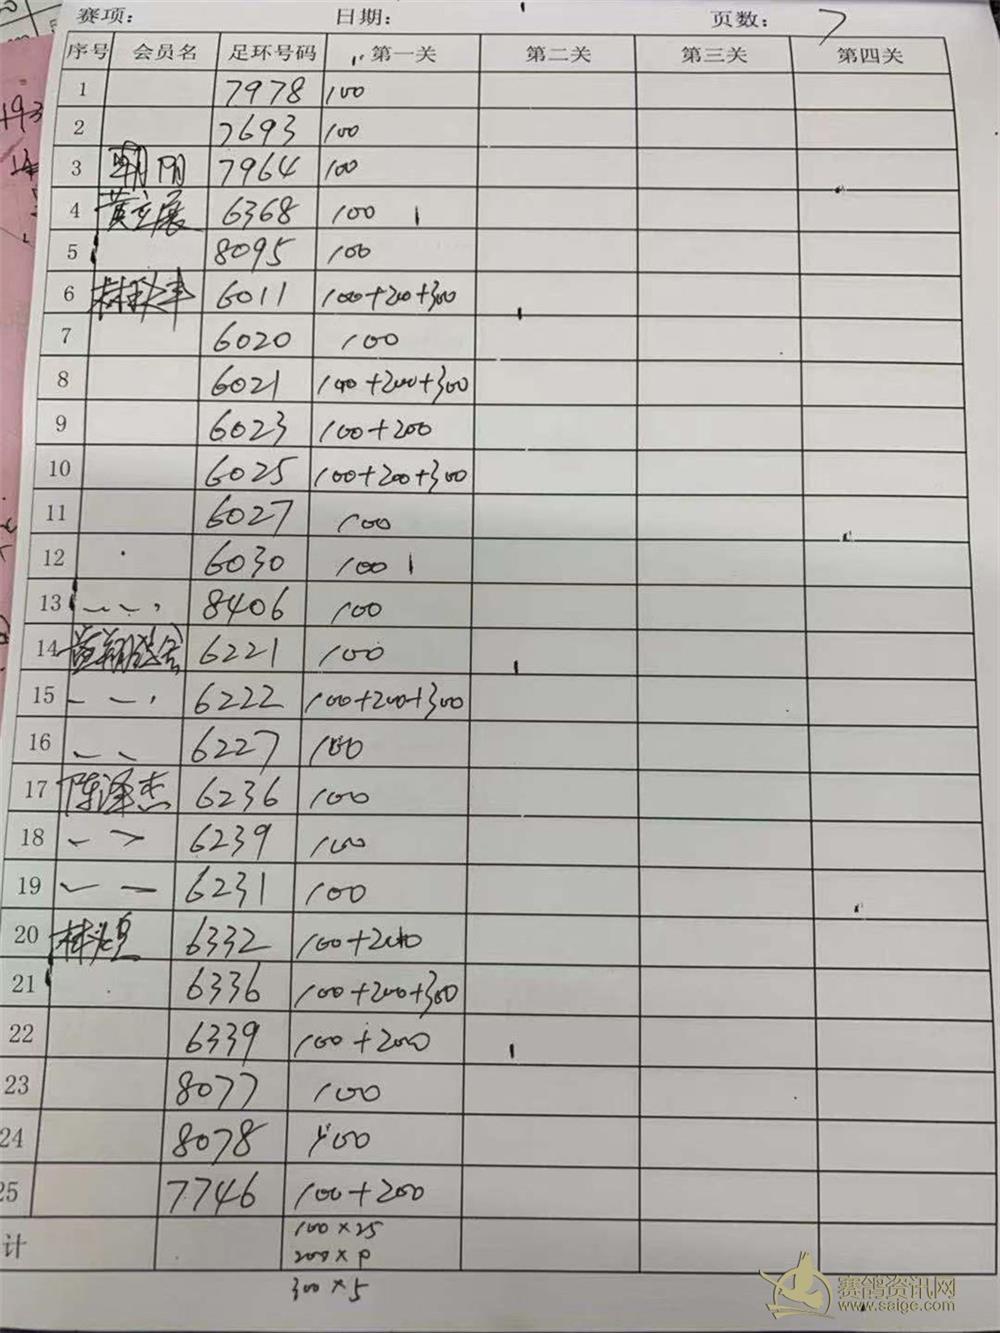 赛项： 日期： 页数： 7
序号 会员名 足环号码 第一关 第二关 第三关 第四关
1 7978 100
2 7693 100
3 7964 100
4 黄立展 6368 100
5 8095 100
6 6011 100+200+300
7 6020 100
8 6021 100+200+300
9 6023 100+200
10 6025 100+200+300
11 6027 100
12 6030 100
13 8406 100
14 6221 100
15 6222 100+200+300
16 6227 100
17 陈泽杰 6236 100
18 6239 100
19 6231 100
20 6332 100+200
21 6336 100+200+300
22 6339 100+200
23 8077 100
24 8078 100
25 7746 100+200
计 100×25
200×
300×5
赛鸽资讯网
www.saige.com